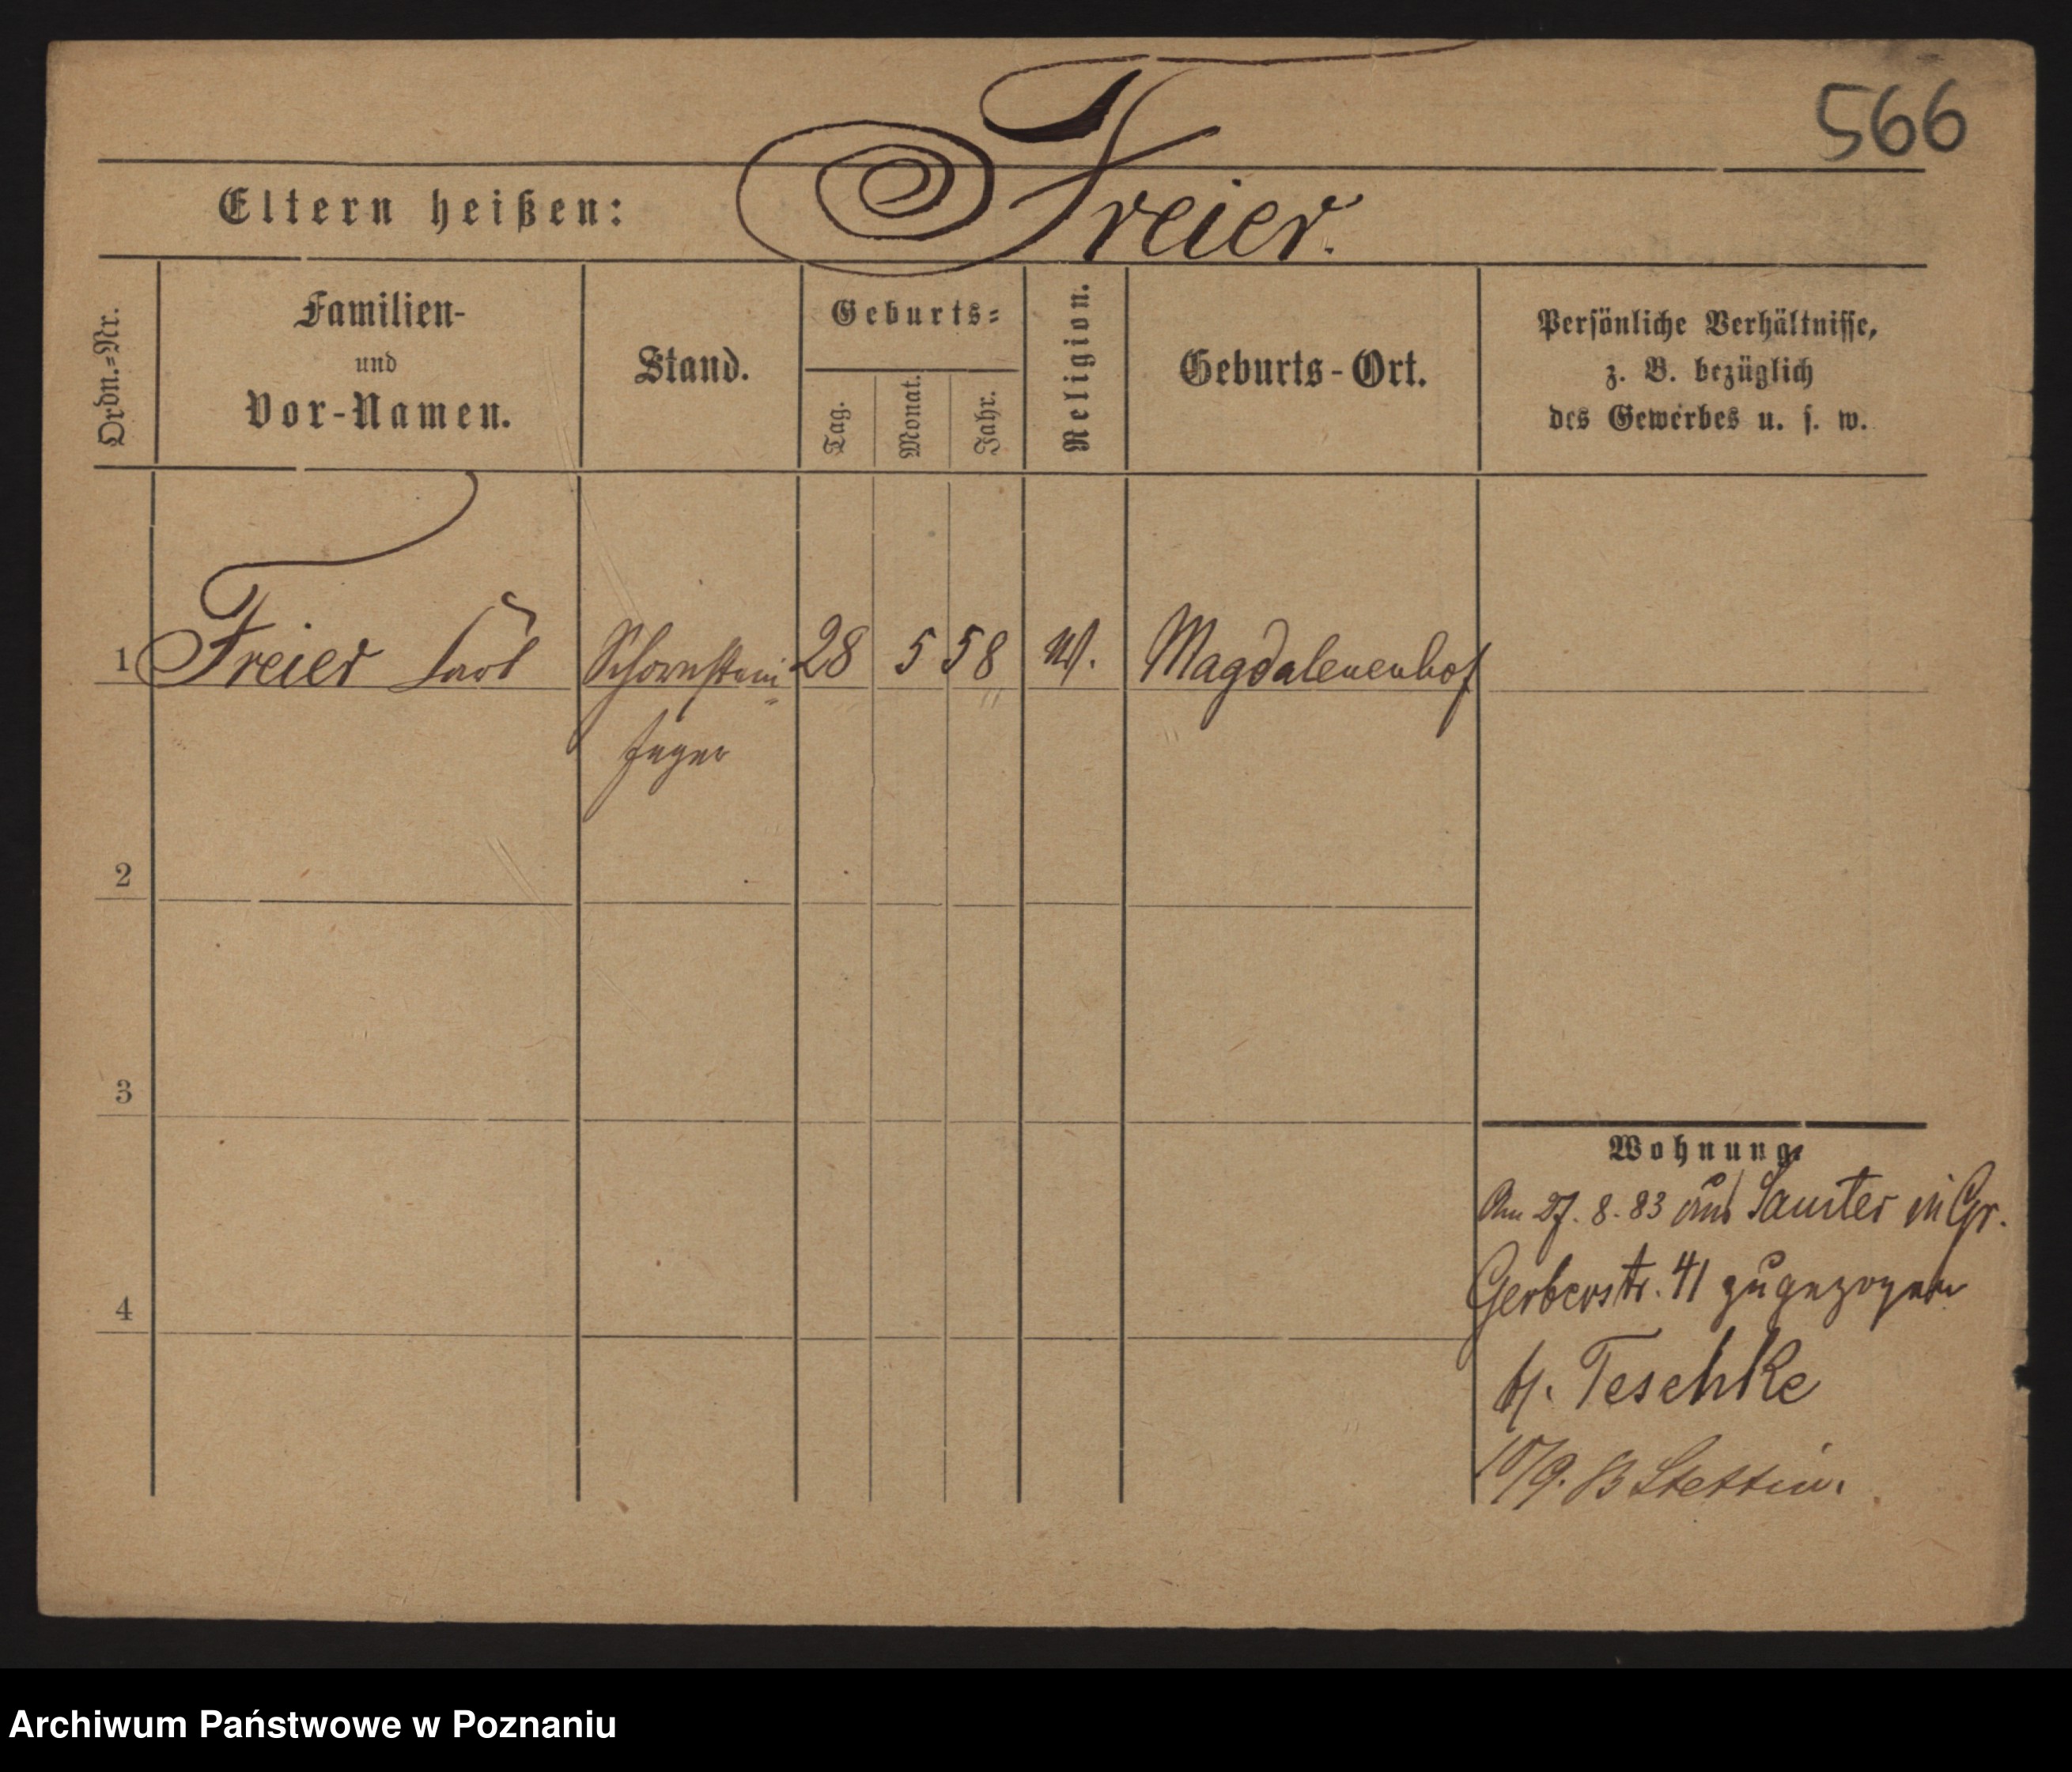 566
Eltern heißen: Freier.
Ordn.=Nr.
Familien-
und
Vor-Namen.
Stand.
Geburts=
Tag.
Monat.
Jahr.
Religion.
Geburts-Ort.
Persönliche Verhältnisse,
z. B. bezüglich
des Gewerbes u. s. w.
1 Freier Carl Schornstein 28 5 58 Magdalenenhof
feger
2
3
4
Wohnung.
Am 27. 8. 83 aus Samter in Gr.
Gerberstr. 41 zugezogen
b/. Teschke
10/9. 83 Stettin.
Archiwum Państwowe w Poznaniu